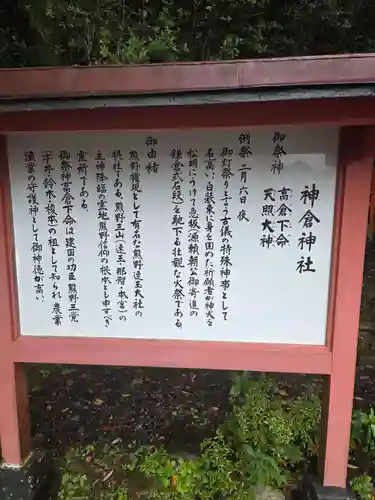 神倉神社
御祭神
高倉下命
天照大神
例祭二月六日夜
御灯祭りと言う古儀の特殊神事として
名高い、白装束に身を固めた祈願者が神火を
松明につけて急坂(源頼朝公御寄進の
鎌倉式石段)を馳下る壮観な火祭である。
御由緒
熊野権現として有名な熊野速玉大社の
摂社である。熊野三山(速玉・那智・本宮)の
主神降臨の霊地熊野信仰の根本とも申すべき
霊所である。
御祭神高倉下命は建国の功臣熊野三党
(宇井・鈴木・榎本)の祖として知られ農業
漁業の守護神として御神徳が高い。